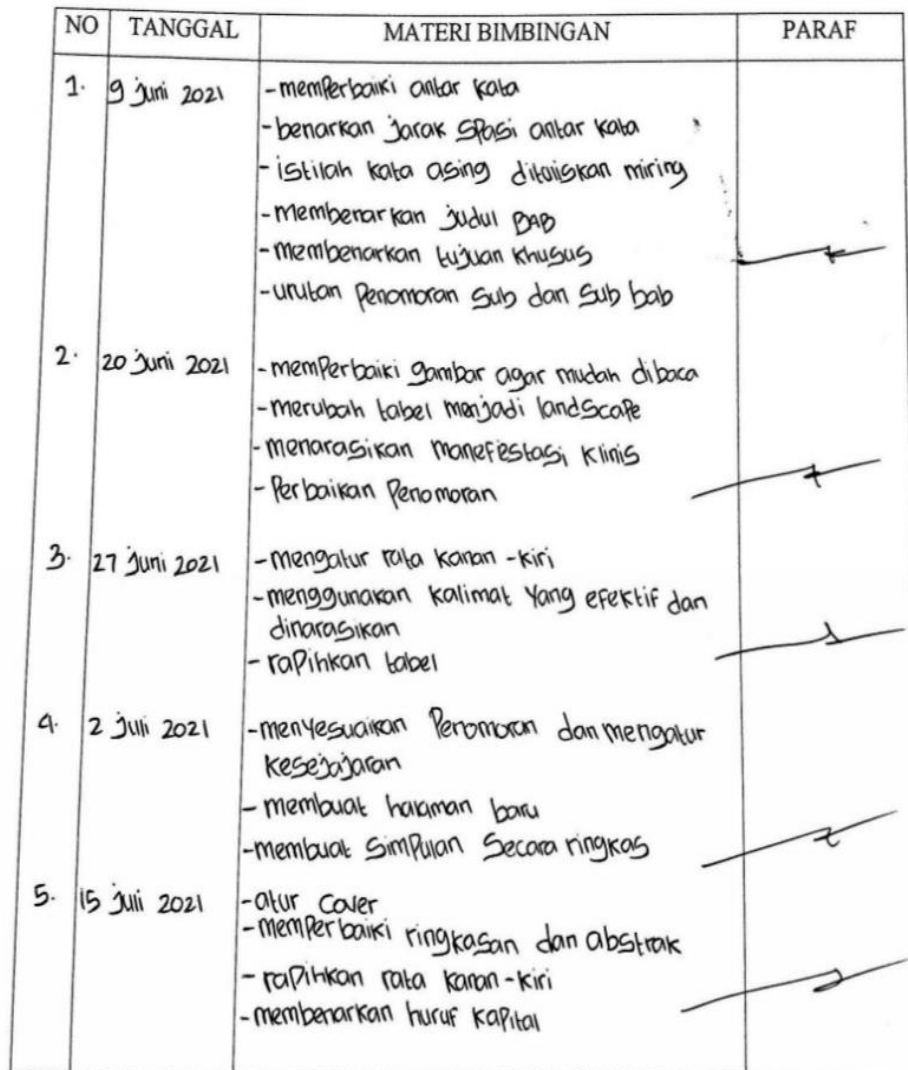 NO TANGGAL MATERI BIMBINGAN PARAF
1. 9 Juni 2021 - memperbaiki antar kata
- benarkan jarak spasi antar kata
- istilah kata asing dituliskan miring
- membenarkan judul BAB
- membenarkan tujuan khusus
- urutan penomoran sub dan sub bab
2. 20 Juni 2021 - memperbaiki gambar agar mudah dibaca
- merubah tabel menjadi landscape
- menarasikan manefestasi klinis
- Perbaikan Penomoran
3. 27 Juni 2021 - mengatur rata kanan -kiri
- menggunakan kalimat yang efektif dan
dinarasikan
- rapihkan tabel
4. 2 Juli 2021 - menyesuaikan Penomoran dan mengatur
kesejajaran
- membuat halaman baru
- membuat simpulan secara ringkas
5. 15 Juli 2021 - atur cover
- memperbaiki ringkasan dan abstrak
- rapihkan rata kanan-kiri
- membenarkan huruf kapital